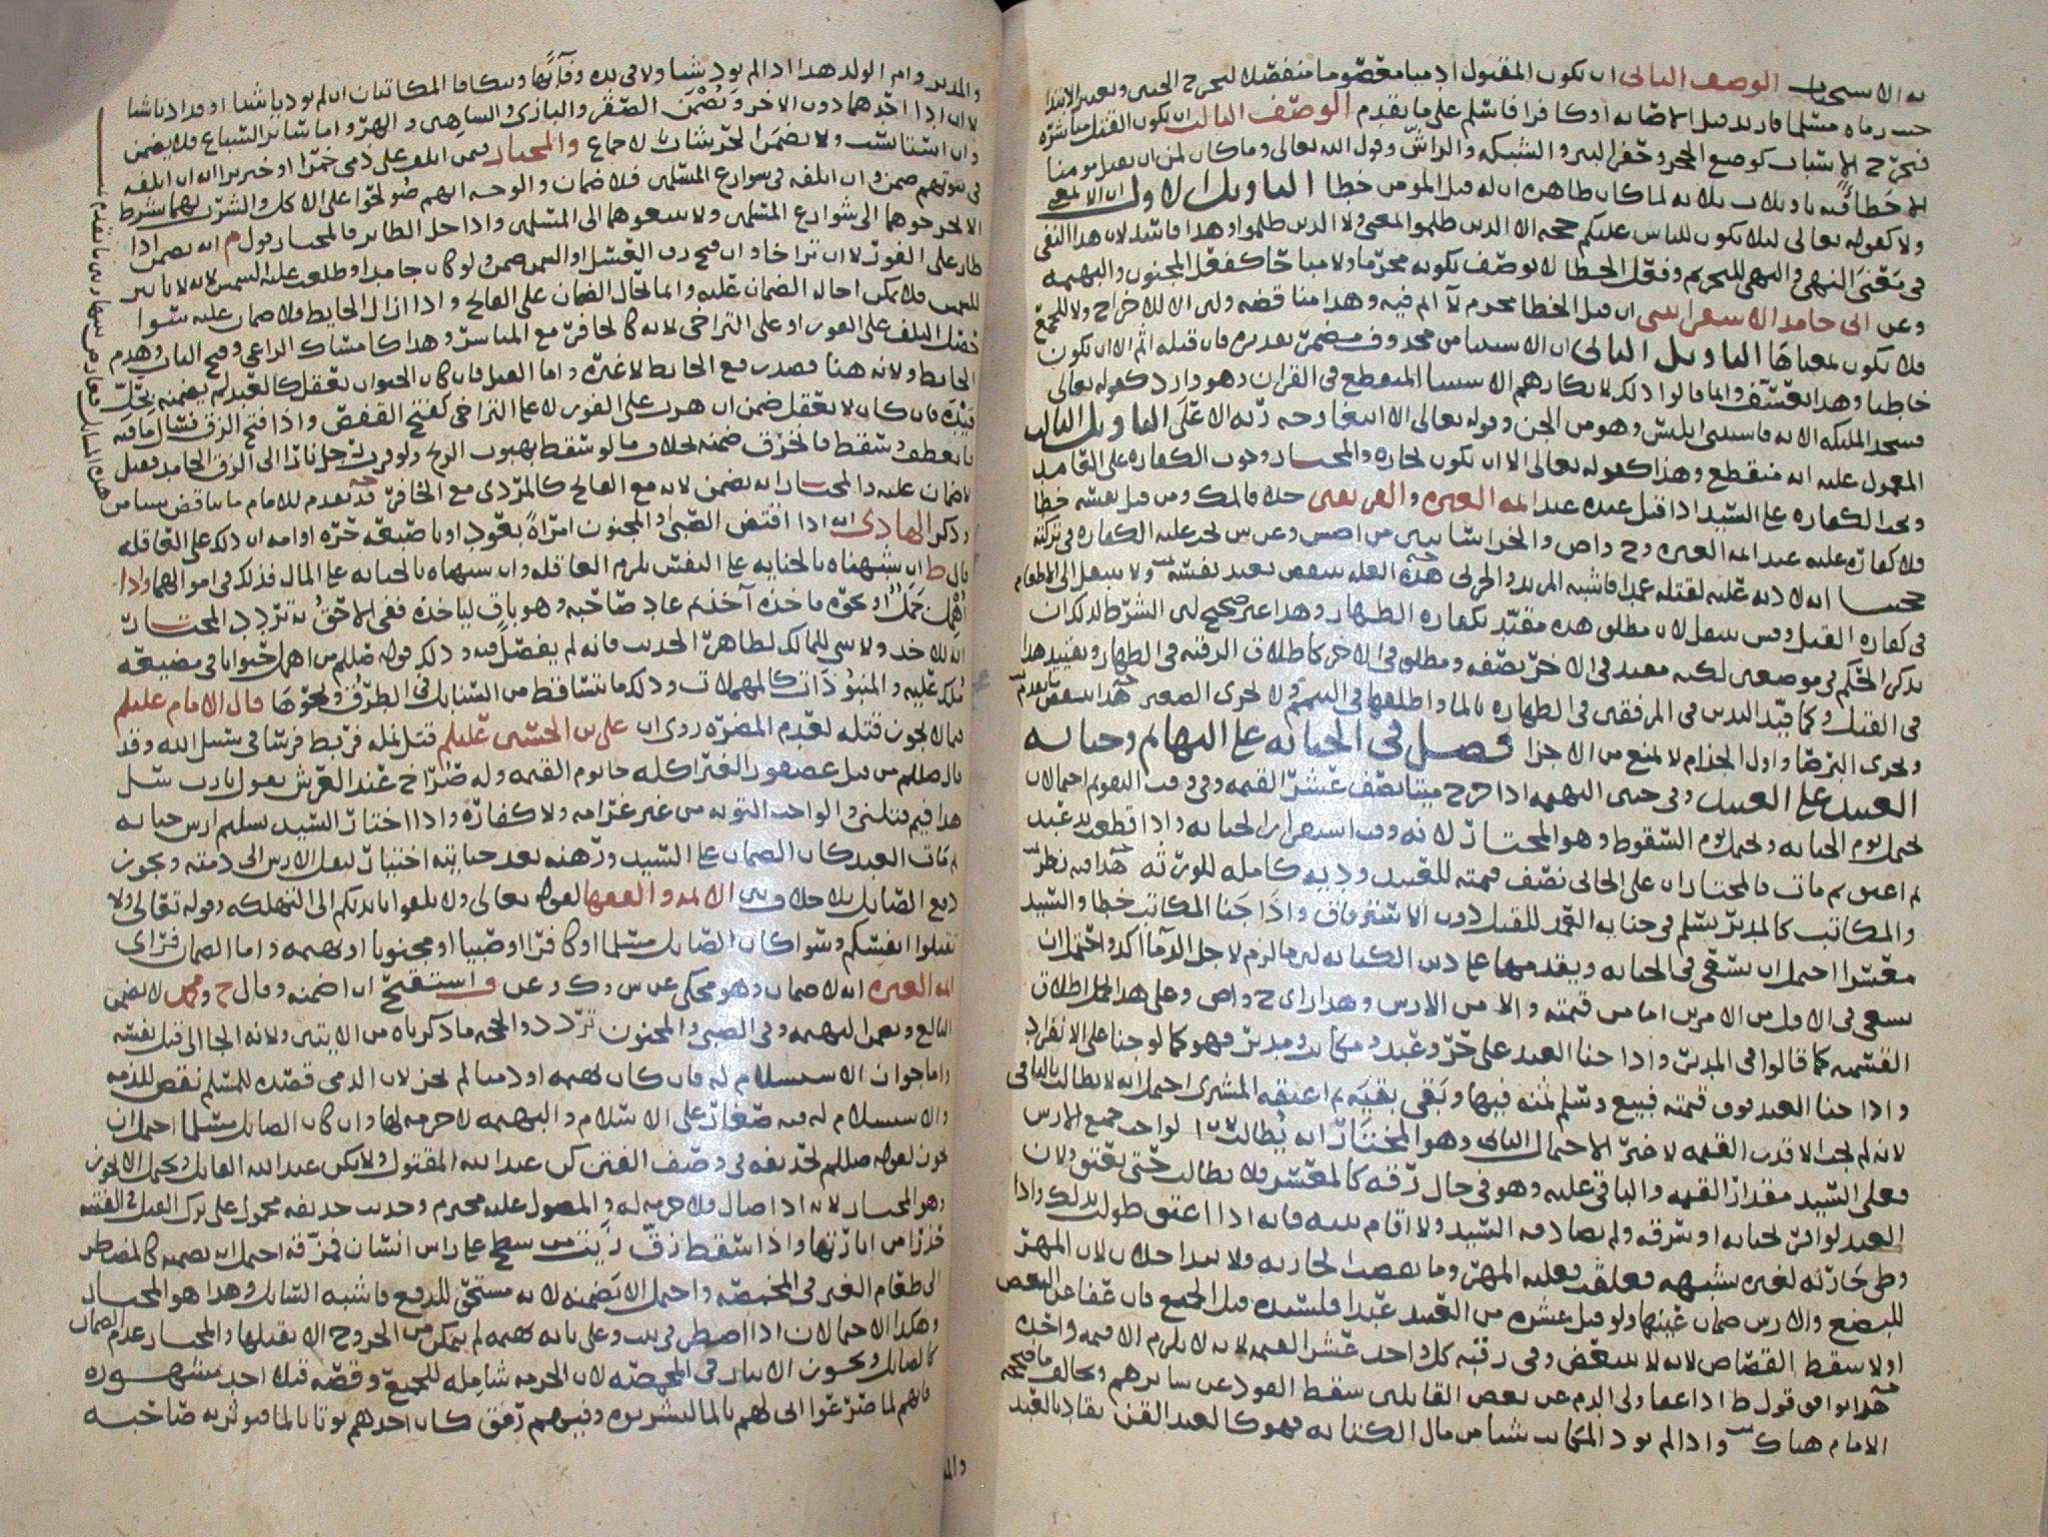 به الاستحباب الوصف الثاني ان يكون المقتول ادميا معصوما منفصلا ليخرج الجنين ويعتبر الابتدا
حتى رماه مسلما فارتد قبل الاصابه او كافرا فاسلم على ما تقدم الوصف الثالث ان يكون القتل مباشره
فيخرج الاسباب كوضع الحجر وحفر البير والشبكه والراش وقول الله تعالى وما كان لمومن ان يقتل مومنا
الا خطا فيه تاويلات ثلاثه لما كان ظاهره ان له قتل المومن خطا التاويل الاول ان الا بمعنى
ولا كقوله تعالى ليلا يكون للناس عليكم حجه الا الذين ظلموا المعنى ولا الذين ظلموا وهذا فاسد لان هذا النفى
في معنى النهي والنهي للتحريم وفعل الخطا لا يوصف بكونه محرما ولا مباحا كفعل المجنون والبهيمه
وعن ابي حامد الاسفراييني ان قتل الخطا محرم لا اثم فيه وهذا مناقضه وليس الا للاخراج ولا للجمع
فلا يكون بمعناها التاويل الثاني ان الاستثنا من محذوف مضمر تقديره فان قتله اثم الا ان يكون
خاطيا وهذا تعسف وانما قالوا ذلك لانكارهم الاستثنا المنقطع في القران وهو وارد كقوله تعالى
فسجد المليكه الايه فاستثنى ابليس وهو من الجن وقوله تعالى الا ابتغا وجه ربه الاعلى التاويل الثالث
المعمول عليه انه منقطع وهذا كقوله تعالى الا ان تكون تجاره والمختار وجوب الكفاره على القاتل
وتجب الكفاره على السيد اذا قتل عبده عند ايمه العتره والفريقين خلافا لمك ومن قتل نفسه خطا
فلا كفاره عليه عند ايمه العتره وح واص والخراسانيين من اصش وعن ش تجب عليه الكفاره في تركته
حجتنا انه لا ديه عليه لقتله عمدا فاشبه المرتد والحربي هذه العله تنتقض بعبد نفسه ولا ينتقل الى الاطعام
في كفاره القتل وقيل ينتقل لان مطلق هذه مقيد بكفاره الظهار وهذا غير صحيح ليس الشرط لذلك ان
يذكر الحكم في موضعين لكنه مقيد في الاخر بصفه ومطلق في الاخر كاطلاق الرقبه في الظهار وتقييد هذا
في القتل وكما قيد اليدين في المرفقين في الطهاره بالما واطلقها في التيمم ولا تجزى الصغير
وتجزى البرصا واول الجذام لا يمنع من الاجزا فصل في الجنايه على البهايم وجنايه
العبيد على العبيد وفي جنين البهيمه اذا خرج ميتا نصف عشر القيمه وفي وقت التقويم احتمالان
يحتمل يوم الجنايه ويحتمل يوم السقوط وهو المختار لانه وقت استقرار الجنايه واذا قطع يد عبد
ثم اعتق ثم مات فالمختار ان على الجاني نصف قيمته للعبد وديه كامله للورثه هذا فيه نظر
والمكاتب كالمدبر يسلم في جنايه العمد للقتل دون الاسترقاق واذا جنا المكاتب خطا والسيد
معسرا احتمل ان يسعى في الجنايه ويقدمها على دين الكتابه ليس ما لزم لاجل الدم اكد واحتمل ان
يسعى في الاقل من الامرين اما من قيمته والا من الارش وهذا راى ح واص وعلى هذا
القسمه كما قالوا في المدبر واذا جنا العبد على حر وعبد ومكاتب ومدبر فهو كما لو جنا على الانفراد
واذا جنا العبد فوق قيمته فبيع وسلم ثمنه فيها وبقى بقيه ثم اعتقه المشترى احتمل انه لا يطالب بالباقي
لانه لم يجب الا قدر القيمه لا خير الاحتمال الثاني وهو المختار انه يطالب لواحد جميع الارش
فعلى السيد مقدار القيمه والباقي عليه وهو في حال رقه كالمعسر فلا يطالب حتى يعتق ولان
العبد لو اقر بجنايه او سرقه ولم يصادقه السيد ولا اقام بينه فانه اذا اعتق طولب بذلك واذا
وطى جاريه لغيره بشبهه فعلقت فعليه المهر وما نقصت الجاريه ولا يتداخلان لان المهر
للبضع والارش ضمان عينها ولو قتل عشره من العبيد عبدا فلسيده قتل الجميع فان عفا عن البعض
اولا سقط القصاص لانه لا يتبعض وفي رقبه كل واحد عشر القيمه لانه لا يلزم الا قيمه واحده
هذا يوافق قول ط اذا عفا ولي الدم عن بعض القاتلين سقط القود عن سايرهم ويخالف ما صححه
الامام هناك واذا لم يود المكاتب شيا من مال الكتابه فهو كالعبد القن يقاد بالعبد
والمدبر وام الولد هذا اذا لم يود شيا ولا في يده وفا ويتكافا المكاتبان ان لم يوديا شيا او قد اديا شيا
لا ان ادا احدهما دون الاخر ويضمن الصقر والبازى والشاهين والهر واما ساير السباع فلا يضمن
وان استانست ولا يضمن الخنزير بلا اجماع والمختار فيمن اتلف على ذمى خمرا او خنزيرا انه ان اتلفه
في بيوتهم ضمن وان اتلفه في شوارع المسلمين فلا ضمان والوجه انهم صولحوا على الاكل والشرب لهما بشرط
الا يخرجوهما الى شوارع المسلمين ولا يبيعوهما الى المسلمين واذا حل الطاير فالمختار قول م انه يضمن اذا
طار على الفور لا ان تراخا وان فتح زق العسل او السمن ضمن ولو كان جامدا وطلعت عليه الشمس لانه لا تاثير
للشمس فلا يمكن احاله الضمان عليه وانما يحال الضمان على الفاتح واذا ازال الحايط فلا ضمان عليه سوا
حصل التلف على الفور او على التراخى لانه كالحافر مع المباشر وهذا كامساك الراعي وفتح الباب وهدم
الحايط ولانه هنا قصد رفع الحايط لا غيره واما القيد فان كان الحيوان يعقل كالعبد لم يضمنه بحل
قيده فان كان لا يعقل ضمن ان هرب على الفور لا على التراخى كفتح القفص واذا فتح الزق فسال ما فيه
فانعطف وسقط فانخرق ضمنه بخلاف ما لو سقط بهبوب الريح ولو قرب رجل نارا الى الزق الجامد فقيل
لا ضمان عليه والمختار انه يضمن لانه مع الفاتح كالمردى مع الحافر قد تقدم للامام ما يناقض
وذكر الهادي انه اذا افتض الصبى او المجنون امراة بعود او باصبعه حره او امه ان ذلك على العاقله
قال ط ان شبهناه بالجنايه على النفس يلزم العاقله وان شبهناه بالجنايه على المال فذلك في اموالهما واذا
اهمل جملا او نحوه فاخذه آخذ ثم عاد صاحبه وهو باق لياخذه ففي الاحق به تردد المختار
انه للاخذ ولا شى للمالك لظاهر الحديث فانه لم يفصل فيه وذلك قوله صللم من اهمل حيوانا في مضيعه
ملك عليه والمنبوذات كالمهملات وذلك ما يتساقط من السنابل في الطرق ونحوها قال الامام عليلم
فيما لا يجوز قتله لعدم المضره روى ان علي بن الحسين عليلم قتل نمله فربط فرسا في سبيل الله وقد
قال صللم من قتل عصفورا لغير اكله جا يوم القيمه وله صراخ عند العرش يقول يا رب سل
هذا فيم قتلني والواجب التوبه من غير غرامه ولا كفاره واذا اختار السيد تسليم ارش جنايه
ثم مات العبد كان الضمان على السيد ورهنه بعد جنايته اختيار لنقل الارش الى ذمته ويجوز
دفع الصايل بلا خلاف بين الايمه والفقها لقوله تعالى ولا تلقوا بايديكم الى التهلكه وقوله تعالى ولا
تقتلوا انفسكم وسوا كان الصايل مسلما او كافرا او صبيا او مجنونا او بهيمه واما الضمان فراى
ايمه العتره انه لا ضمان وهو محكى عن ش وك وعن ف استقبح ان اضمنه وقال ح ومحمد لا يضمن
البالغ ويضمن البهيمه وفي الصبى والمجنون تردد والحجه ما ذكرناه من الايتين ولانه الجا الى قتل نفسه
واما جواز الاستسلام له فان كان بهيمه او ذميا لم يجز لان الذمى قصده للمسلم نقض للذمه
والاستسلام له فيه صغار على الاسلام والبهيمه لا حرمه لها وان كان الصايل مسلما احتمل ان
يجوز لقوله صللم لحذيفه في وصف الفتن كن عبد الله المقتول ولا تكن عبد الله القاتل ويحتمل الا يجوز
وهو المختار لانه اذا صال فلا حرمه له والمصول عليه محترم وحديث حذيفه محمول على ترك القتل في الفتنه
حذرا من اثارتها واذا سقط زق زيت من سطح على راس انسان فمزقه احتمل ان يضمنه كالمضطر
الى طعام الغير في المخمصه واحتمل الا يضمنه لانه مستحق للدفع فاشبه الصايل وهذا هو المختار
وهكذا الاحتمالان اذا اضطر في بيت وعلى بابه بهيمه لم يتمكن من الخروج الا بقتلها والمختار عدم الضمان
كالصايل ويجوز الايثار في المخمصه لان الحرمه شامله للجميع وقصه قتلى احد مشهوره
فانهم لما صرعوا اتى لهم بالما ليشربوه وفيهم رمق كان احدهم يوتا بالما فيوثر به صاحبه
والمد
هذه المسائل